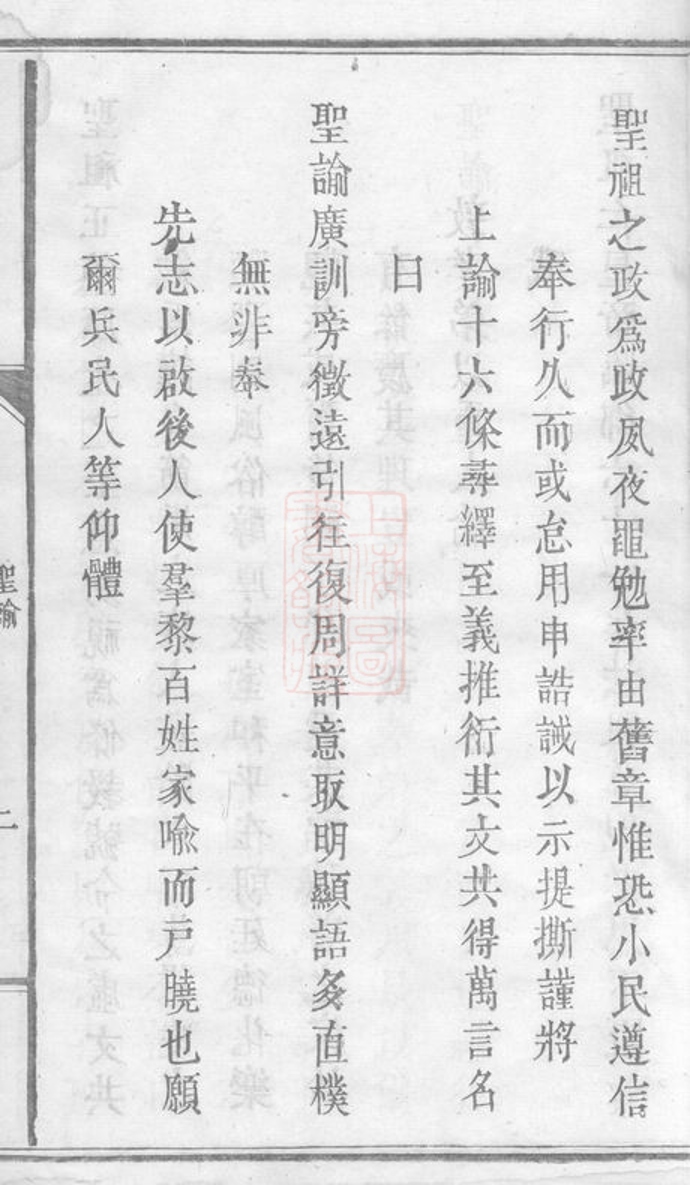 聖祖之政爲政夙夜黽勉率由舊章惟恐小民遵信
奉行久而或怠用申誥誡以示提撕謹將
上諭十六條尋繹至義推衍其文共得萬言名
曰
聖諭廣訓旁徵遠引往復周詳意取明顯語多直樸
無非奉
先志以啟後人使羣黎百姓家喻而戸曉也願
爾兵民人等仰體
聖諭
二